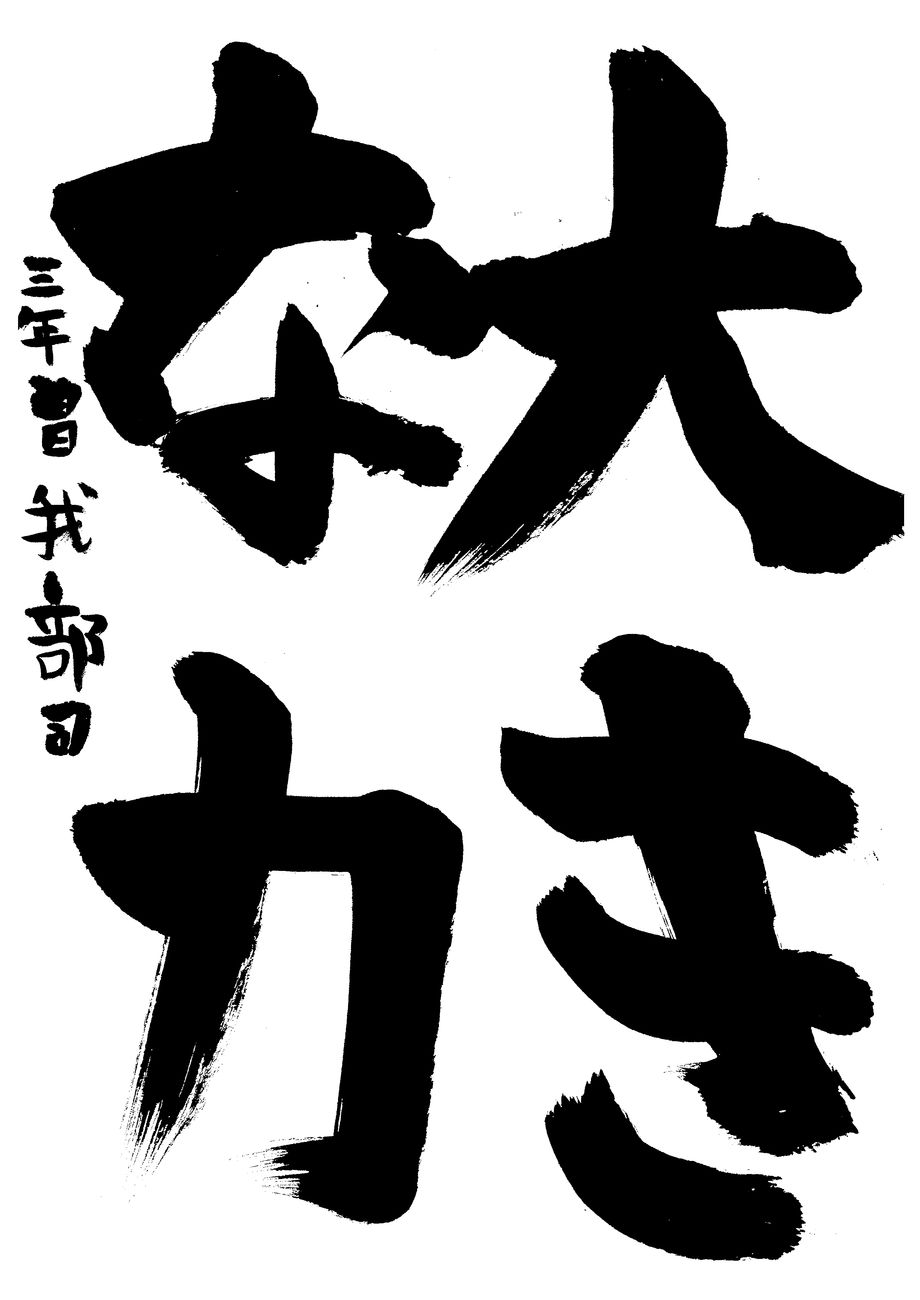 大き
な力
三年 曽我部司